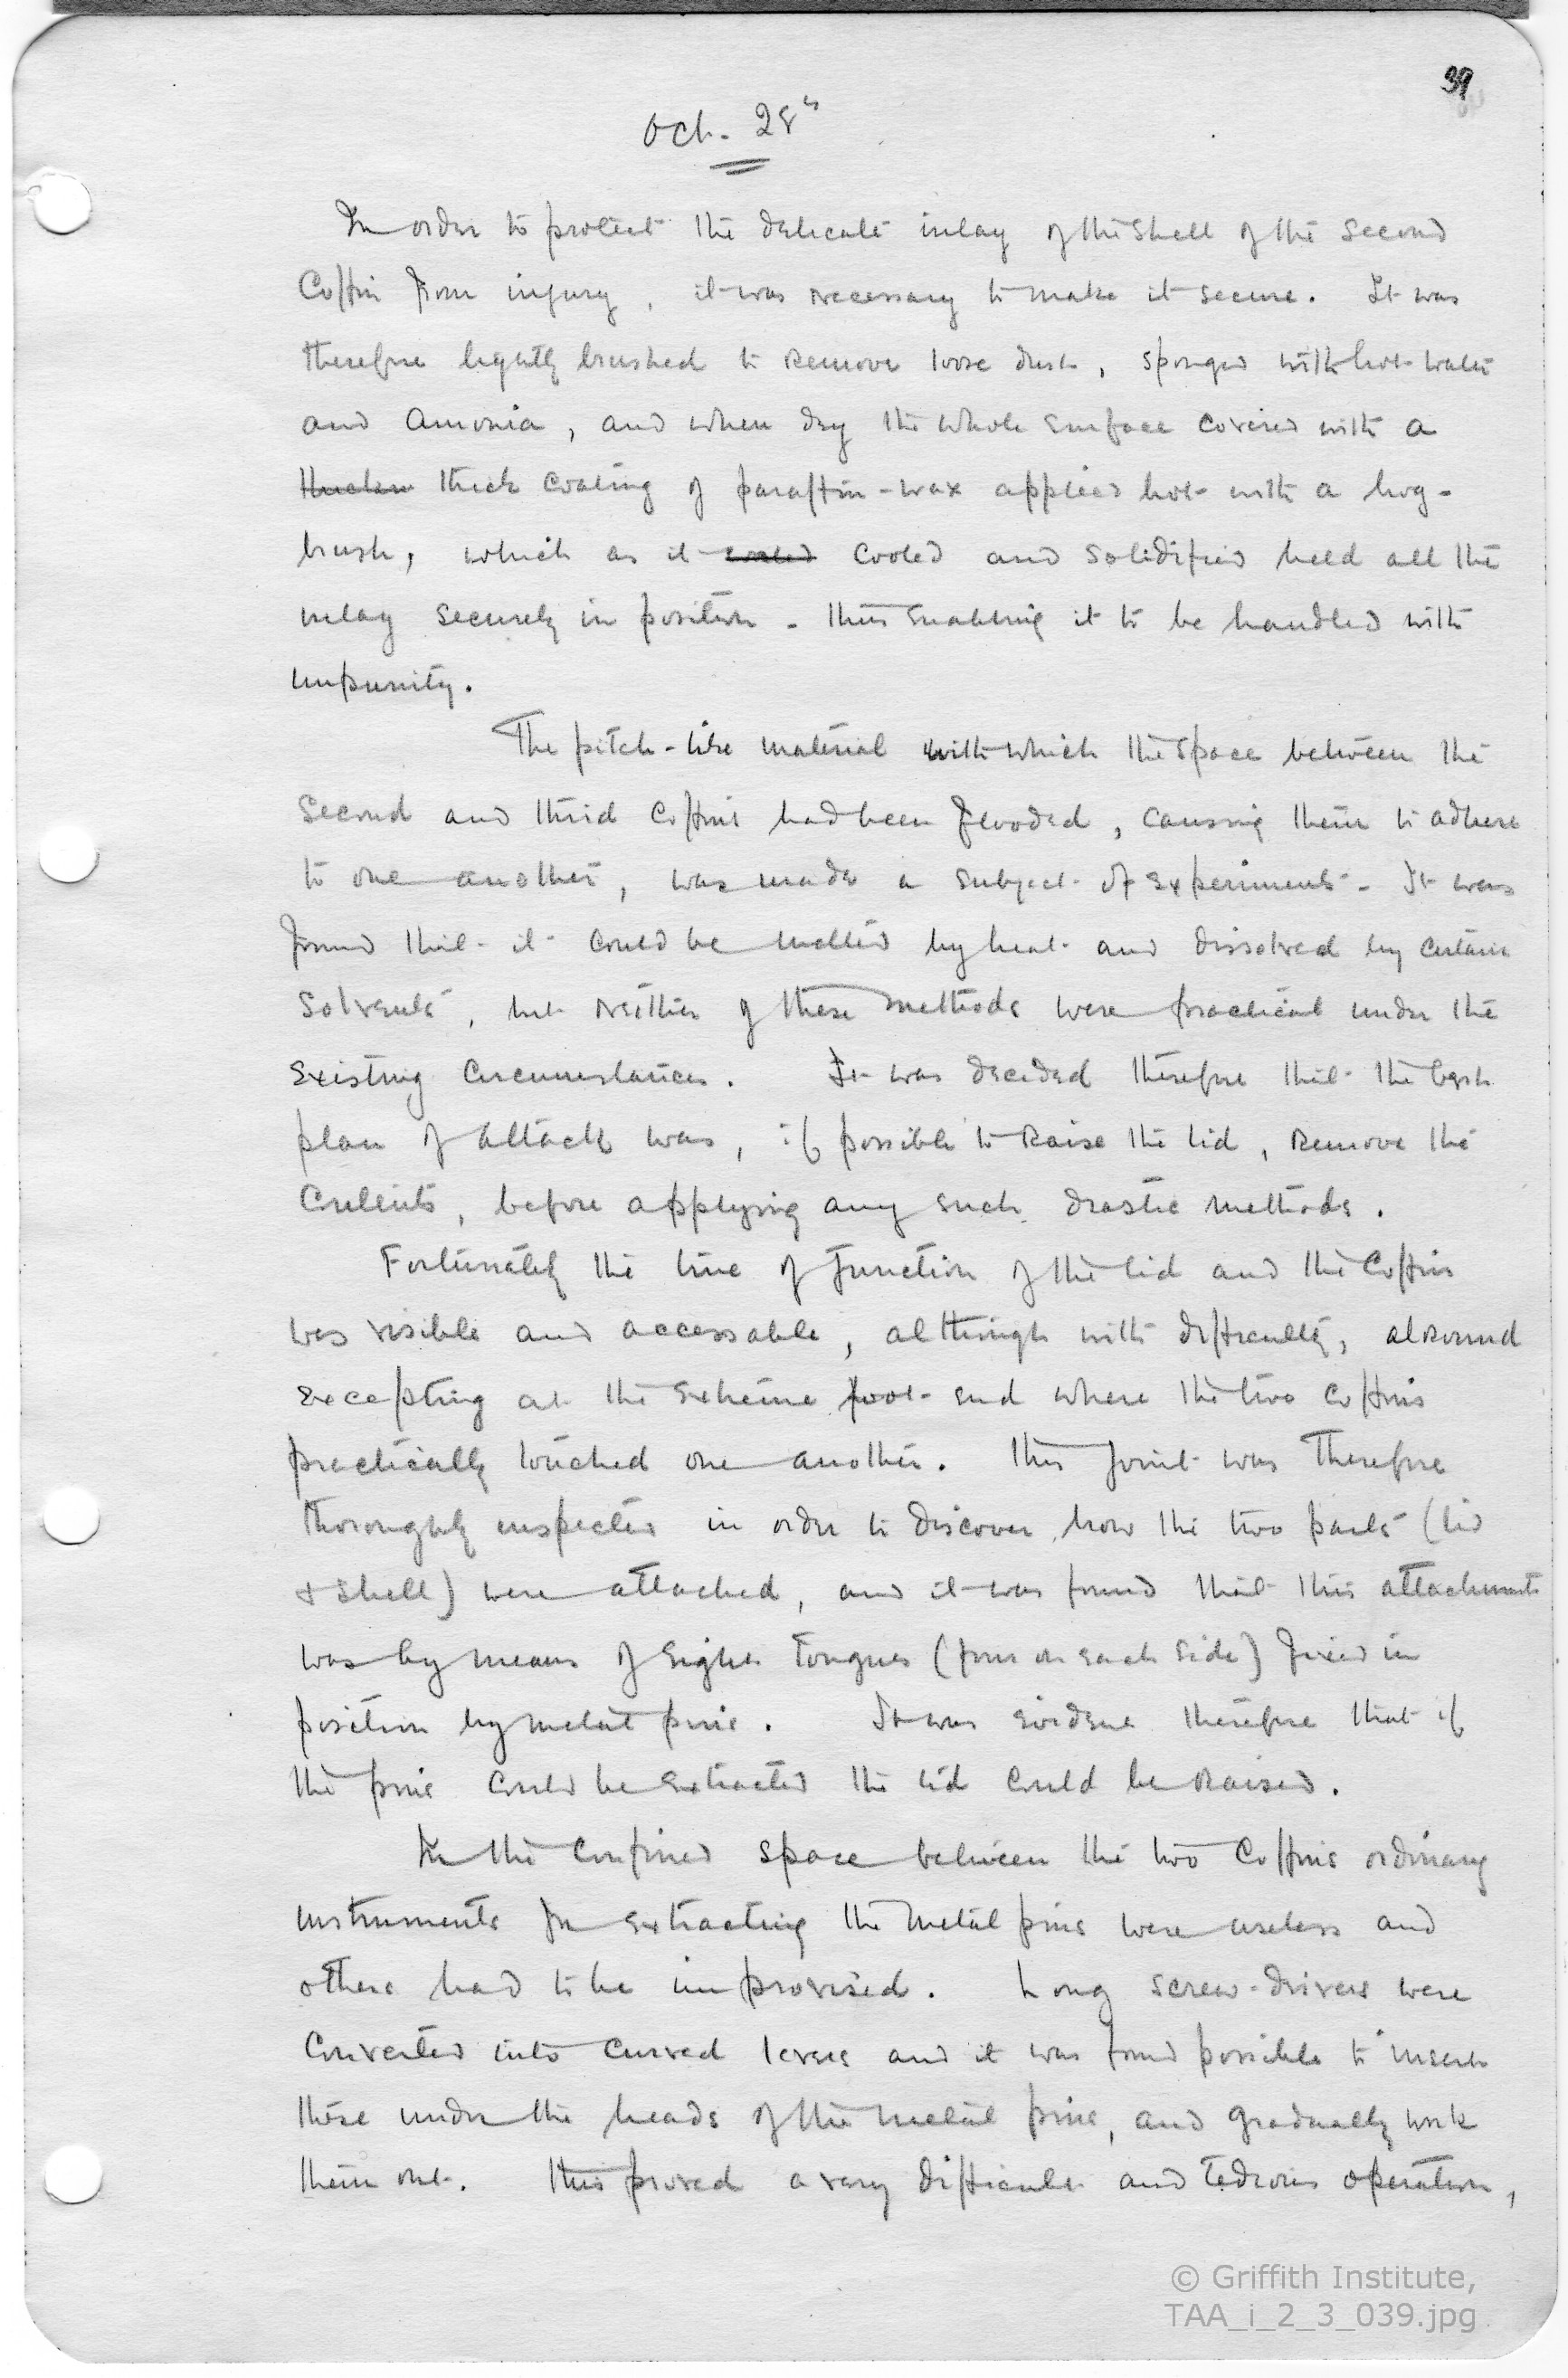 39
Oct. 28th
In order to protect the delicate inlay of the shell of the second
Coffin from injury, it was necessary to make it secure. It was
therefore lightly brushed to remove loose dust, sponged with hot water
and amonia, and when dry the whole surface covered with a
thick coating of paraffin-wax applied hot with a hog-
brush, which as it cooled cooled and solidified held all the
inlay securely in position - thus enabling it to be handled with
impunity.
The pitch-like material with which the space between the
second and third coffins had been flooded, causing them to adhere
to one another, was made a subject of experiments. It was
found that it could be melted by heat and dissolved by certain
solvents, but neither of these methods were practical under the
existing circumstances. It was decided therefore that the best
plan of attack was, if possible to raise the lid, remove the
contents, before applying any such drastic methods.
Fortunately the line of junction of the lid and the Coffin
was visible and accessable, although with difficulty, alround
excepting at the extreme foot-end where the two coffins
practically touched one another. This joint was therefore
thoroughly inspected in order to discover how the two parts (lid
& shell) were attached, and it was found that this attachment
was by means of eight tongues (four on each side) fixed in
position by metal pins. It was evident therefore that if
the pins could be extracted the lid could be raised.
In the confined space between the two Coffins ordinary
instruments for extracting the metal pins were useless and
others had to be improvised. Long screw-drivers were
converted into curved levers and it was found possible to insert
these under the heads of the metal pins, and gradually work
them out. This proved a very difficult and tedious operation,
© Griffith Institute,
TAA_i_2_3_039.jpg